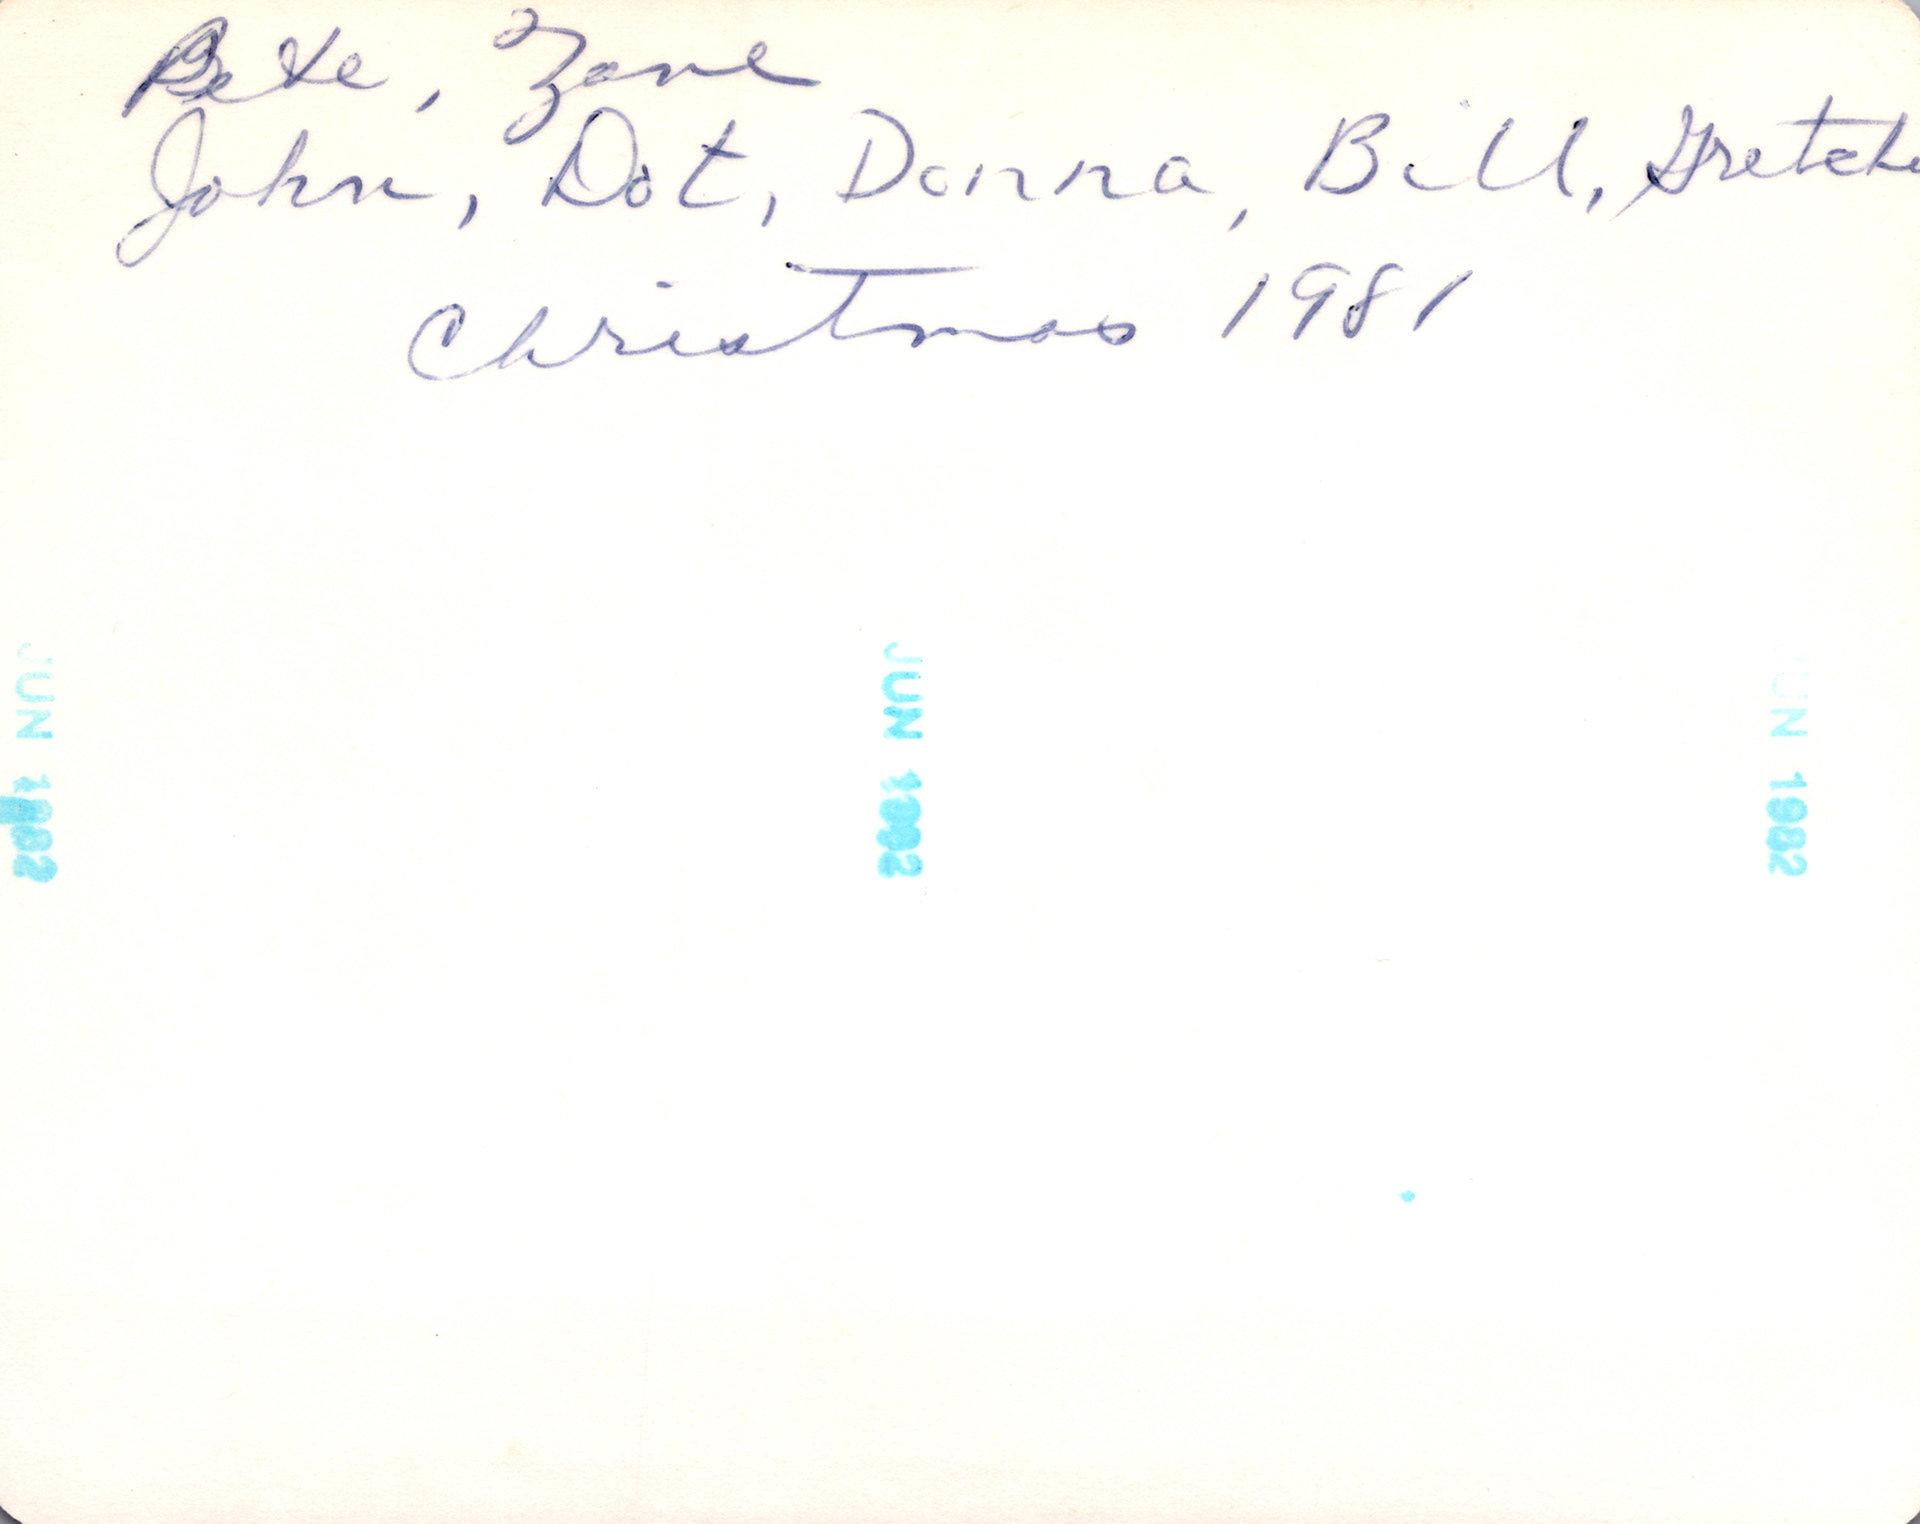 Pete, Zane
John, Dot, Donna, Bill, Gretche
Christmas 1981
JUN 1982
JUN 1982
UN 1982